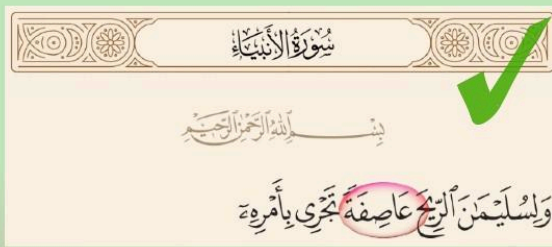 سُورَةُ الأَنْبِيَاءِ
بِسْمِ اللَّهِ الرَّحْمَٰنِ الرَّحِيمِ
وَلِسُلَيْمَٰنَ ٱلرِّيحَ عَاصِفَةً تَجْرِى بِأَمْرِهِۦٓ